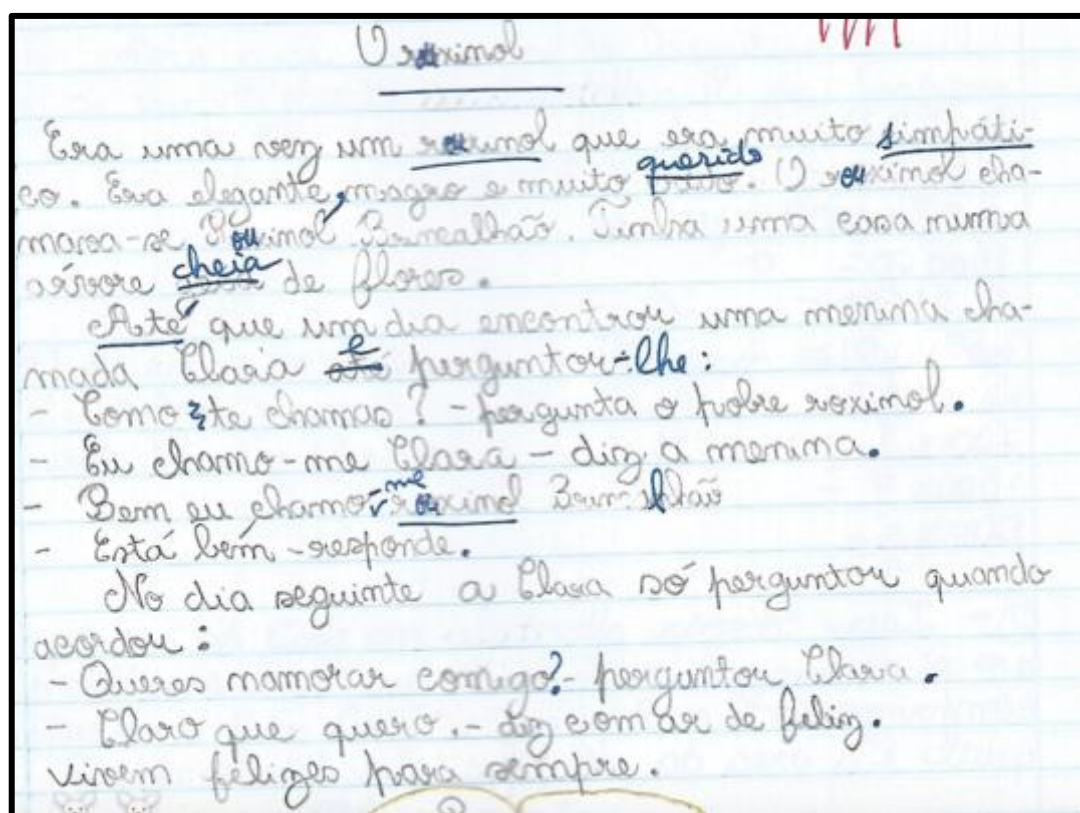 O rouxinol
Era uma vez um rouxinol que era muito simpáti-
co. Era elegante, magro e muito querido. O rouxinol cha-
mava-se Rouxinol Brincalhão. Tinha uma casa numa
árvore cheia de flores.
Até que um dia encontrou uma menina cha-
mada Clara e perguntou-lhe:
- Como te chamas? - pergunta o pobre roxinol.
- Eu chamo-me Clara - diz a menina.
- Bem eu chamo-me rouxinol Brincalhão
- Está bem - responde.
No dia seguinte a Clara só perguntou quando
acordou:
- Queres namorar comigo? - perguntou Clara.
- Claro que quero. - diz com ar de feliz.
vivem felizes para sempre.